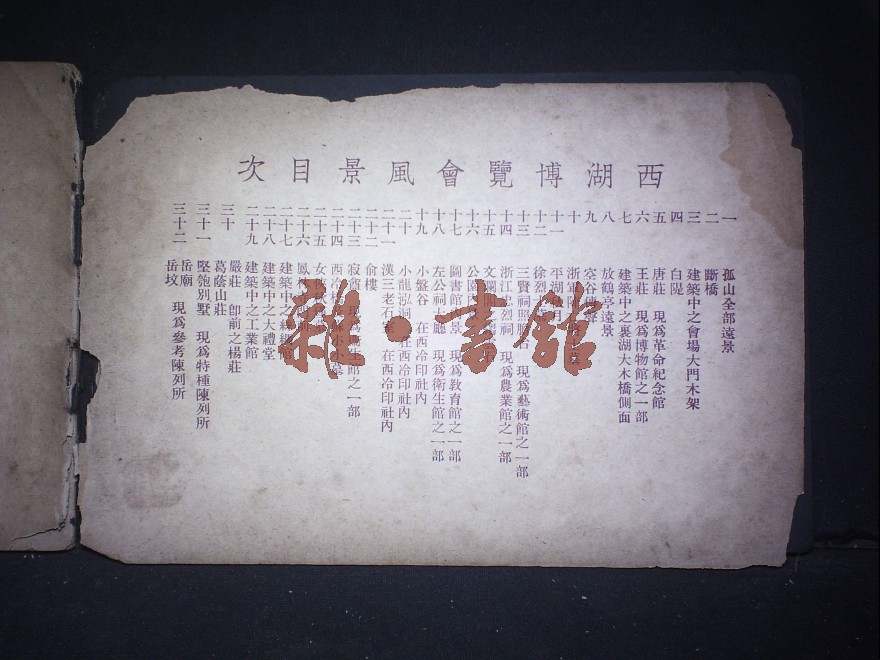 西湖博覽會風景目次
一 孤山全部遠景
二 斷橋
三 建築中之會場大門木架
四 白隄
五 唐莊 現爲革命紀念館
六 王莊 現爲博物館之一部
七 建築中之裏湖大木橋側面
八 放鶴亭遠景
九 空谷
十 浙軍
十一 平湖秋月
十二 徐烈
十三 三賢祠照 現爲藝術館之一部
十四 浙江忠烈祠 現爲農業館之一部
十五 文瀾閣
十六 公園內
十七 圖書館 景 現爲敎育館之一部
十八 左公祠 廳 現爲衛生館之一部
十九 小盤谷 在西泠印社內
二十 小龍泓洞 在西泠印社內
二十一 漢三老石室 在西泠印社內
二十二 俞樓
二十三 現爲衛生館之一部
二十四 西泠橋 蘇小小墓
二十五 女俠
二十六 鳳林
二十七 建築中之 館
二十八 建築中之大禮堂
二十九 建築中之工業館
三十 嚴莊 卽前之楊莊
葛蔭山莊
三十一 堅匏別墅 現爲特種陳列所
三十二 岳廟
岳墳 現爲參考陳列所
雜·書館